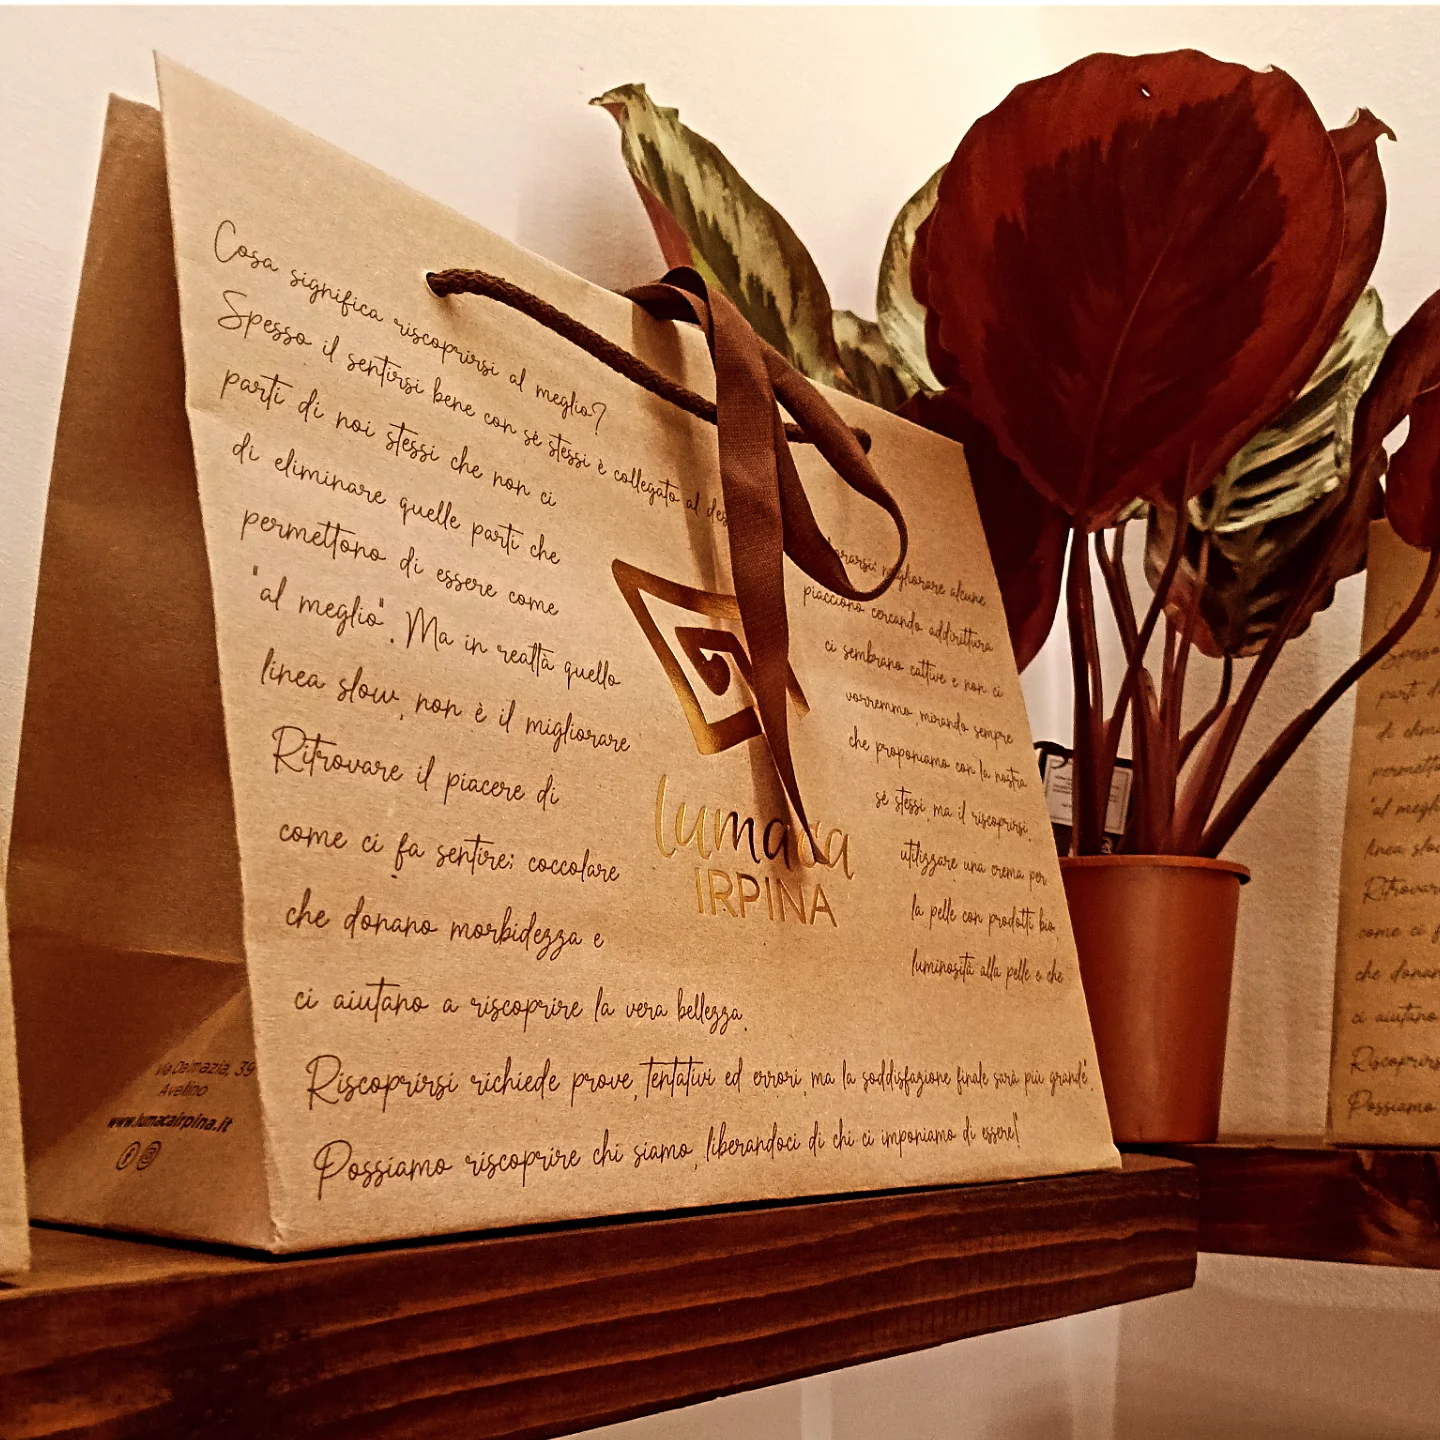 Cosa significa riscoprirsi al meglio?
Spesso il sentirsi bene con sè stessi è collegato al
migliorare alcune
parti di noi stessi che non ci piacciono cercando addirittura
di eliminare quelle parti che ci sembrano cattive e non ci
permettono di essere come vorremmo, mirando sempre
"al meglio". Ma in realtà quello che proponiamo con la nostra
linea slow, non è il migliorare sé stessi, ma il riscoprirsi.
Ritrovare il piacere di utilizzare una crema per
come ci fa sentire; coccolare la pelle con prodotti bio,
che donano morbidezza e luminosità alla pelle e che
ci aiutano a riscoprire la vera bellezza.
Riscoprirsi richiede prove, tentativi ed errori, ma la soddisfazione finale sarà più grande".
Possiamo riscoprire chi siamo, liberandoci di chi ci imponiamo di essere!"
lumaca
IRPINA
Via Dalmazia, 39
Avellino
www.lumacairpina.it
Spesso
parti d
di elimi
permetto
"al megli
linea slow
Ritrovar
come ci f
che donan
ci aiutano
Riscoprirs
Possiamo